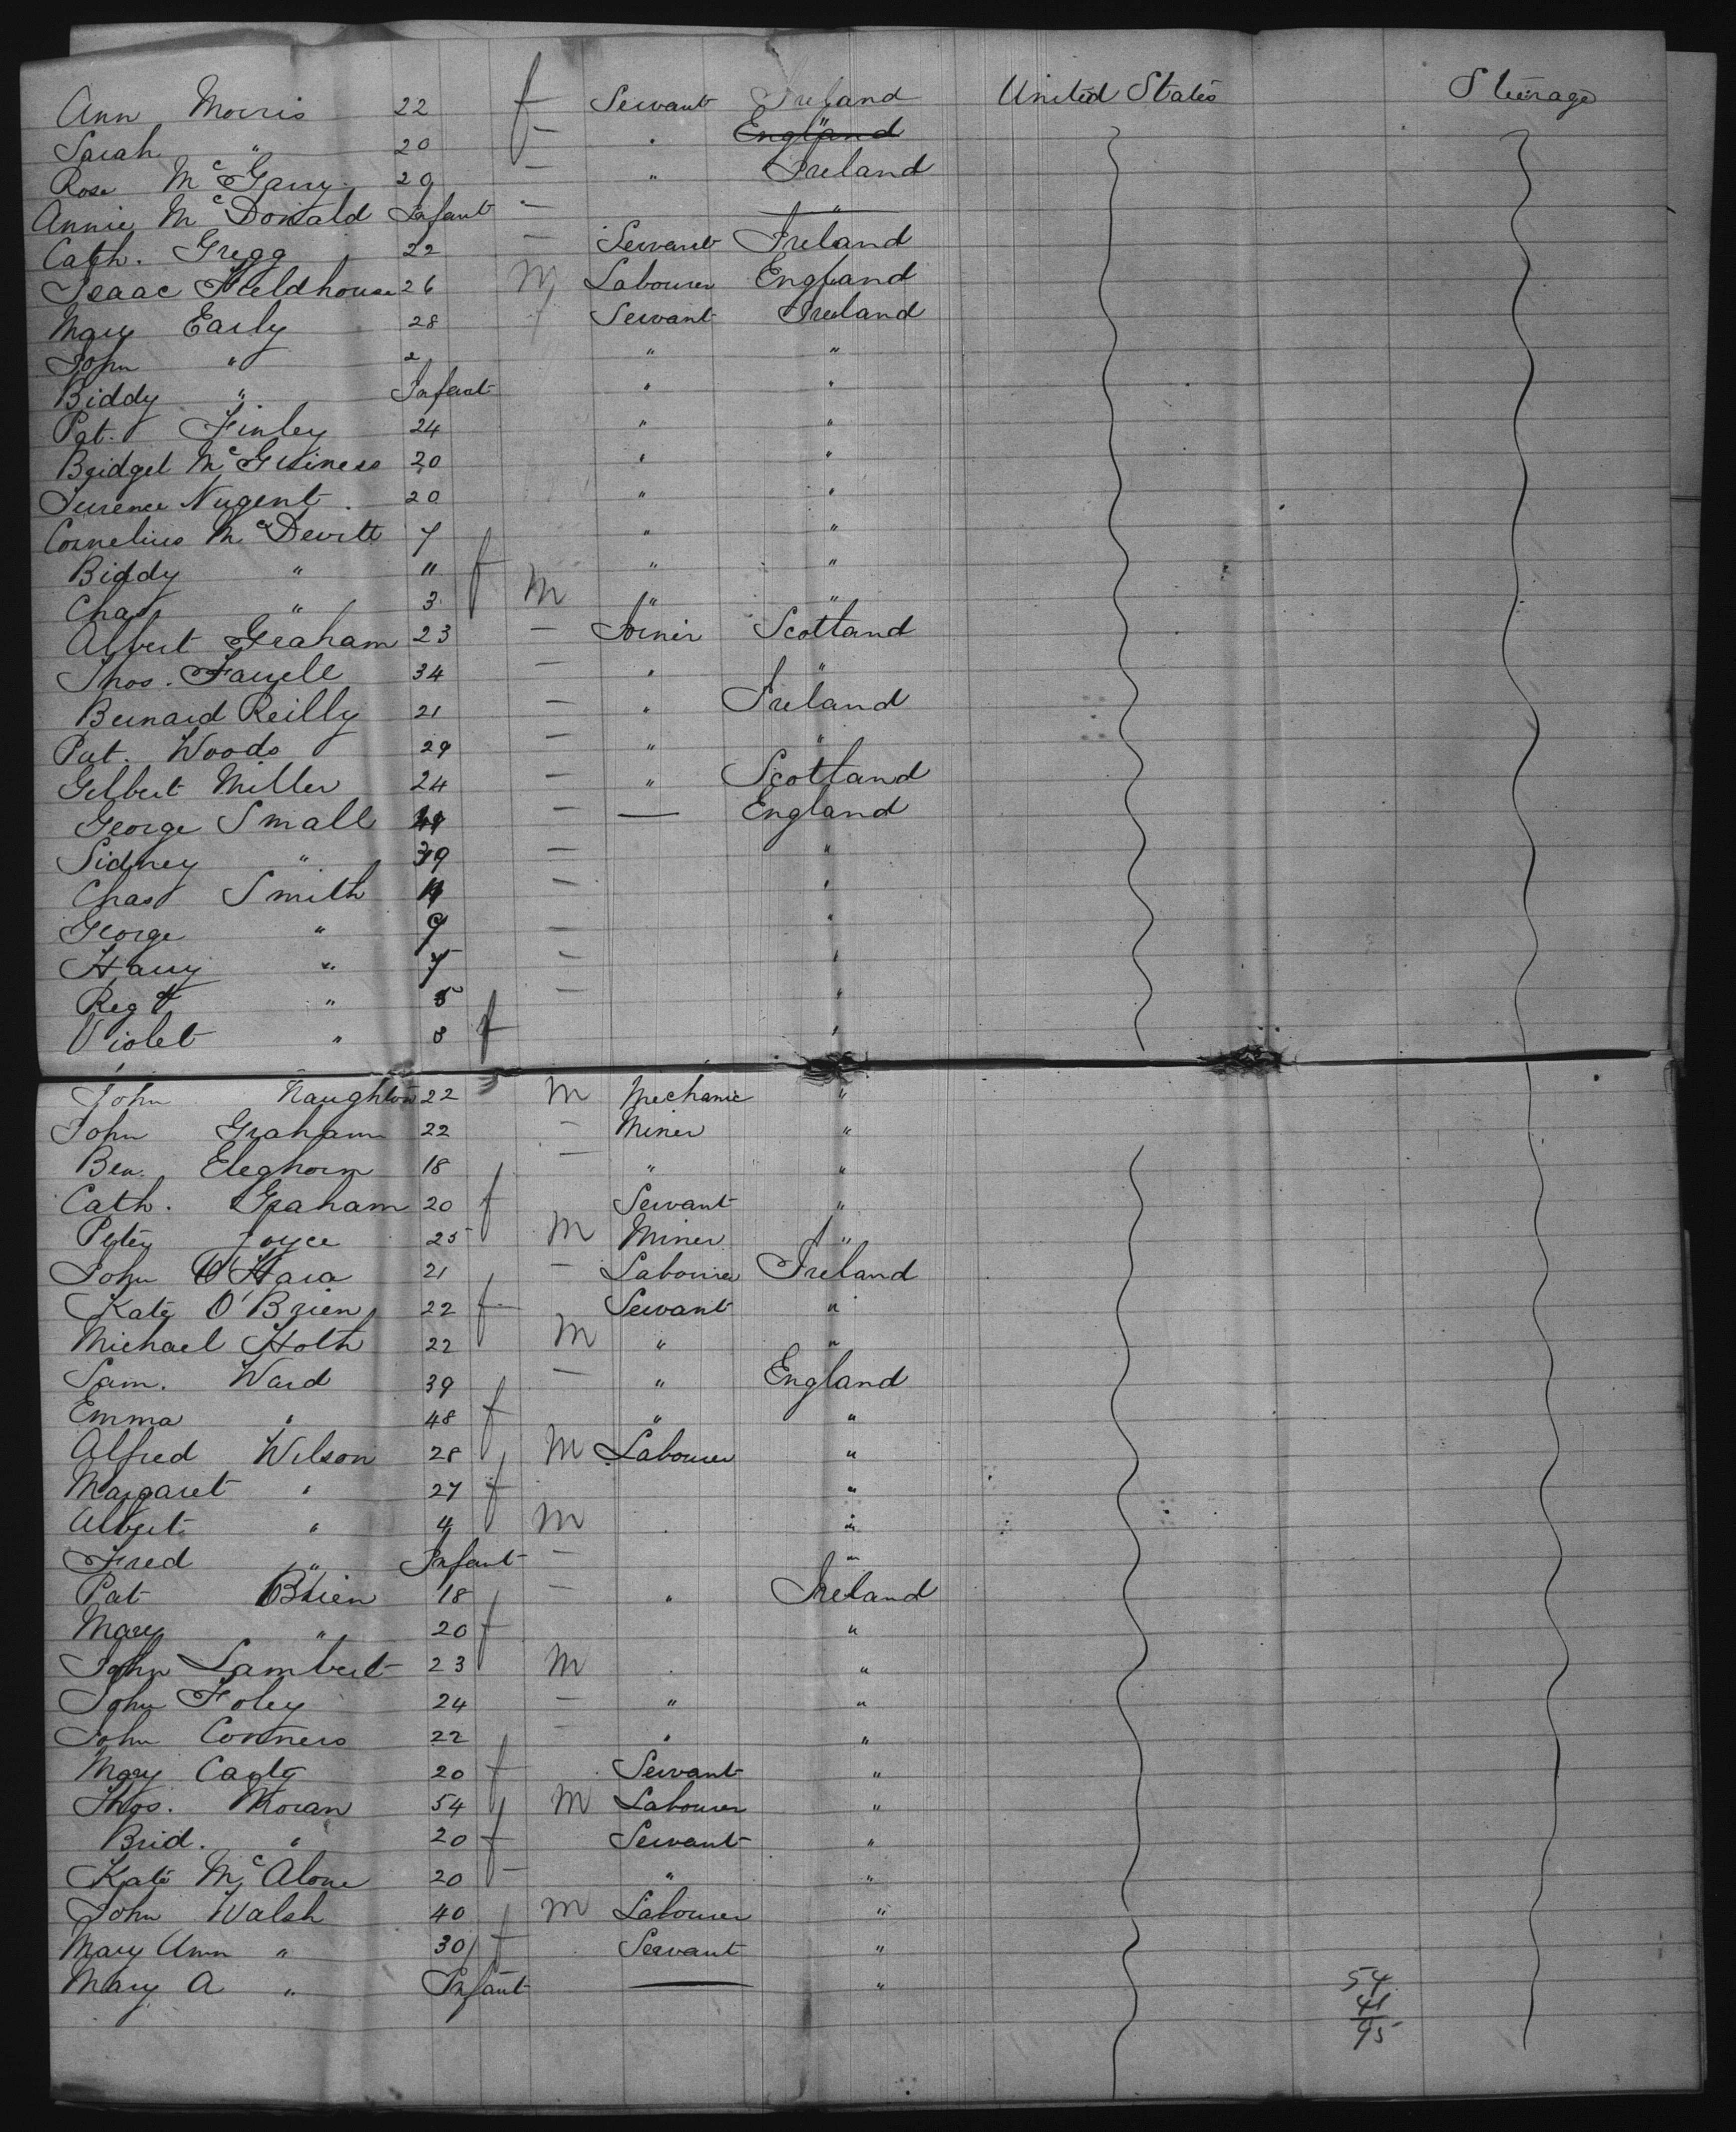 Ann Morris 22 f Servant Ireland United States Steerage
Sarah " 20 — " England
Rose McGarry 29 — " Ireland
Annie McDonald Infant — — "
Cath. Gregg 22 — Servant Ireland
Isaac Fieldhouse 26 M Labourer England
Mary Early 28 f Servant Ireland
John " 2 " "
Biddy " Infant " "
Pat. Finley 24 " "
Bridget McGuiness 20 " "
Terence Nugent 20 " "
Cornelius McDevitt 7 " "
Biddy " 11 f " "
Chas " 3 M " "
Albert Graham 23 — Joiner Scotland
Thos. Farrell 34 — " "
Bernard Reilly 21 — " Ireland
Pat. Woods 29 — " "
Gilbert Miller 24 — " Scotland
George Small — — England
Sidney " 39 — "
Chas Smith 11 — "
George " 9 — "
Harry " 7 — "
Reg " 5 — "
Violet " 8 f "
John Naughton 22 M Mechanic "
John Graham 22 — Miner "
Ben. Eleghorn 18 — " "
Cath. Graham 20 f Servant "
Peter Joyce 25 M Miner "
John O'Hara 21 — Labourer Ireland
Kate O'Brien 22 f Servant "
Michael Holth 22 M " "
Sam. Ward 39 — " England
Emma " 48 f " "
Alfred Wilson 28 M Labourer "
Margaret " 27 f "
Albert " 4 M "
Fred " Infant — "
Pat OBrien 18 — " Ireland
Mary " 20 f "
John Lambert 23 M "
John Foley 24 — " "
John Conners 22 — " "
Mary 20 f Servant "
Thos. Moran 54 M Labourer "
Brid. " 20 f Servant "
Kate McAlone 20 — " "
John Walsh 40 M Labourer "
Mary Ann " 30 f Servant "
Mary A " Infant — "
54
41
95